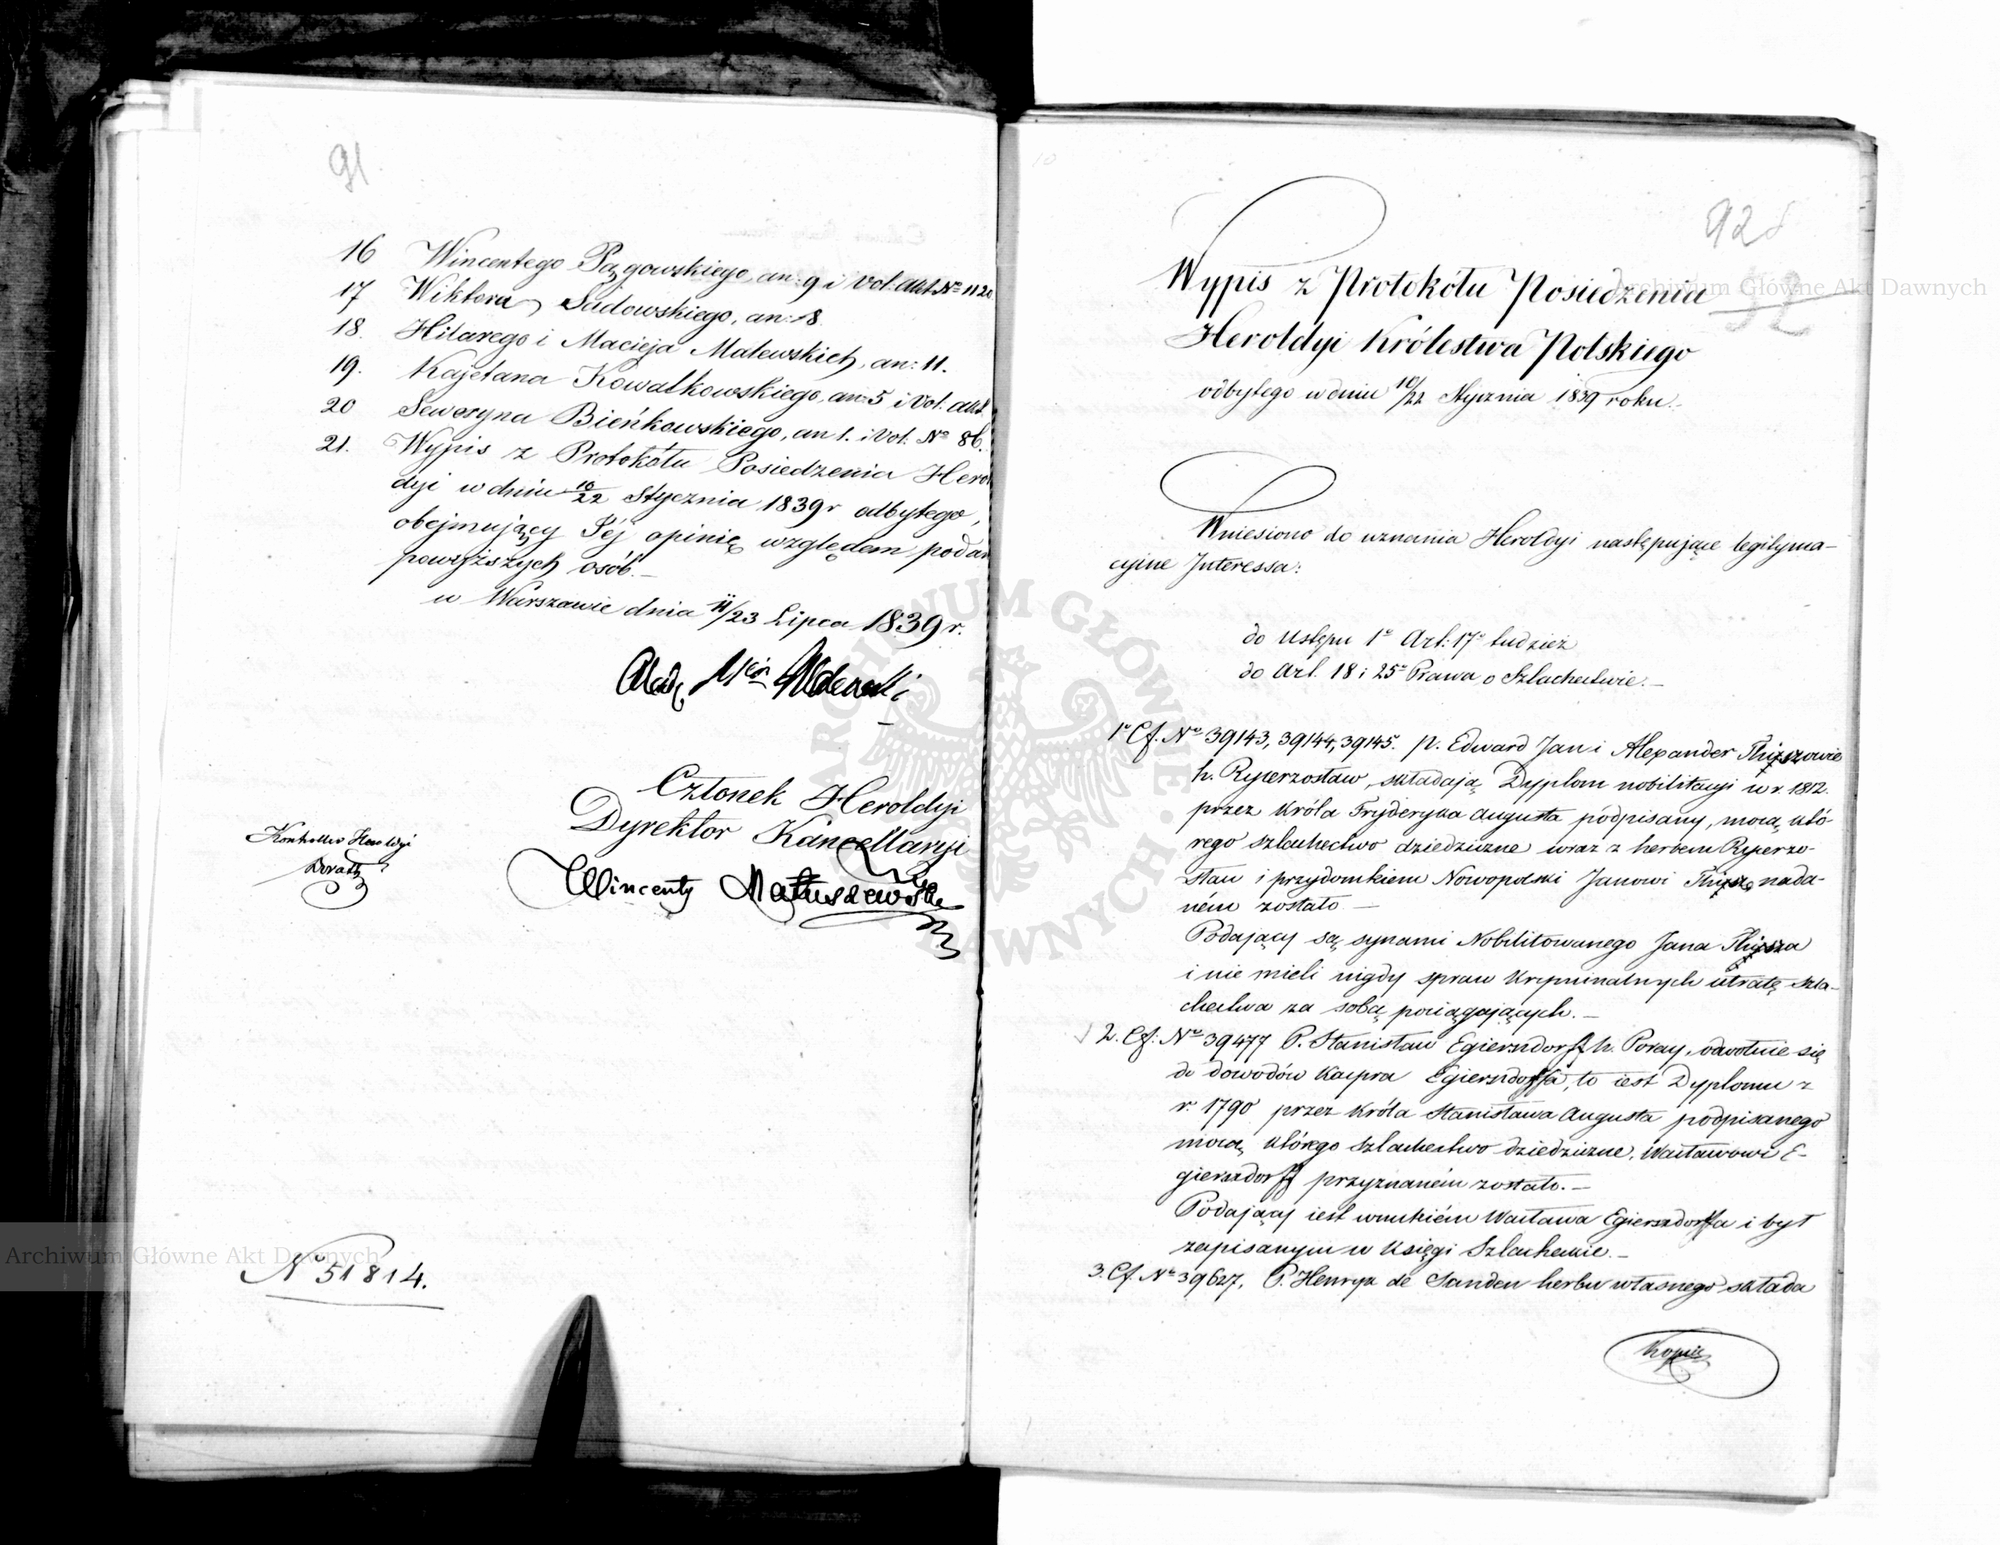 91.
16 Wincentego Pągowskiego, an: 9 i Vol: Akt. No 1120
17 Wiktora Sadowskiego, an: 18
18. Hilarego i Macieja Malewskich, an: 11.
19. Kajetana Kowalkowskiego, an: 5 i Vol. Akt
20 Seweryna Bieńkowskiego, an 1. i Vol: No 86.
21. Wypis z Protokółu Posiedzenia Herol
dyi w dniu 10/22 Stycznia 1839 r odbytego,
obejmujący Jéj opinię względem podań
powyższych osób.—
w Warszawie dnia 11/23 Lipca 1839 r.
Członek Heroldyi
Dyrektor Kancellaryi
Wincenty Matuszewski
Kontroller Heroldyi
No 51814.
92
Wypis z Protokółu Posiedzenia
Heroldyi Królestwa Polskiego
odbytego w dniu 10/22 Stycznia 1839 roku.
Wniesiono do uznania Heroldyi następujące legityma-
cyjne Interessa:
do Ustępu 1o Art: 17o tudzież
do Art. 18 i 25o Prawa o Szlachectwie.—
1o Cf. No 39143, 39144, 39145. P. Edward Jan i Alexander
h. Ryperzosław, składają Dyplom nobilitacyi w r. 1812.
przez Króla Fryderyka Augusta podpisany, mocą któ-
rego szlachectwo dziedziczne wraz z herbem Ryperzo-
sław i przydomkiem Nowopolski Janowi nada-
ném zostało —
Podający są synami Nobilitowanego Jana
i nie mieli nigdy spraw kryminalnych utratę szla-
chectwa za sobą pociągających.—
2. Cf: No 39477 P. Stanisław Egierszdorff h. Poray, odwołuie się
do dowodów Kacpra Egierszdorffa, to iest Dyplomu z
r. 1790 przez Króla Stanisława Augusta podpisanego
mocą którego szlachectwo dziedziczne, Wacławowi E-
gierszdorff przyznaném zostało.—
Podający iest wnukiém Wacława Egierszdorffa i był
zapisanym w Księgi Szlacheckie.—
3. Cf. No 39627, P. Henryk de Sanden herbu własnego składa
Kopia
Archiwum Główne Akt Dawnych
Archiwum Główne Akt Dawnych
ARCHIWUM GŁÓWNE AKT DAWNYCH